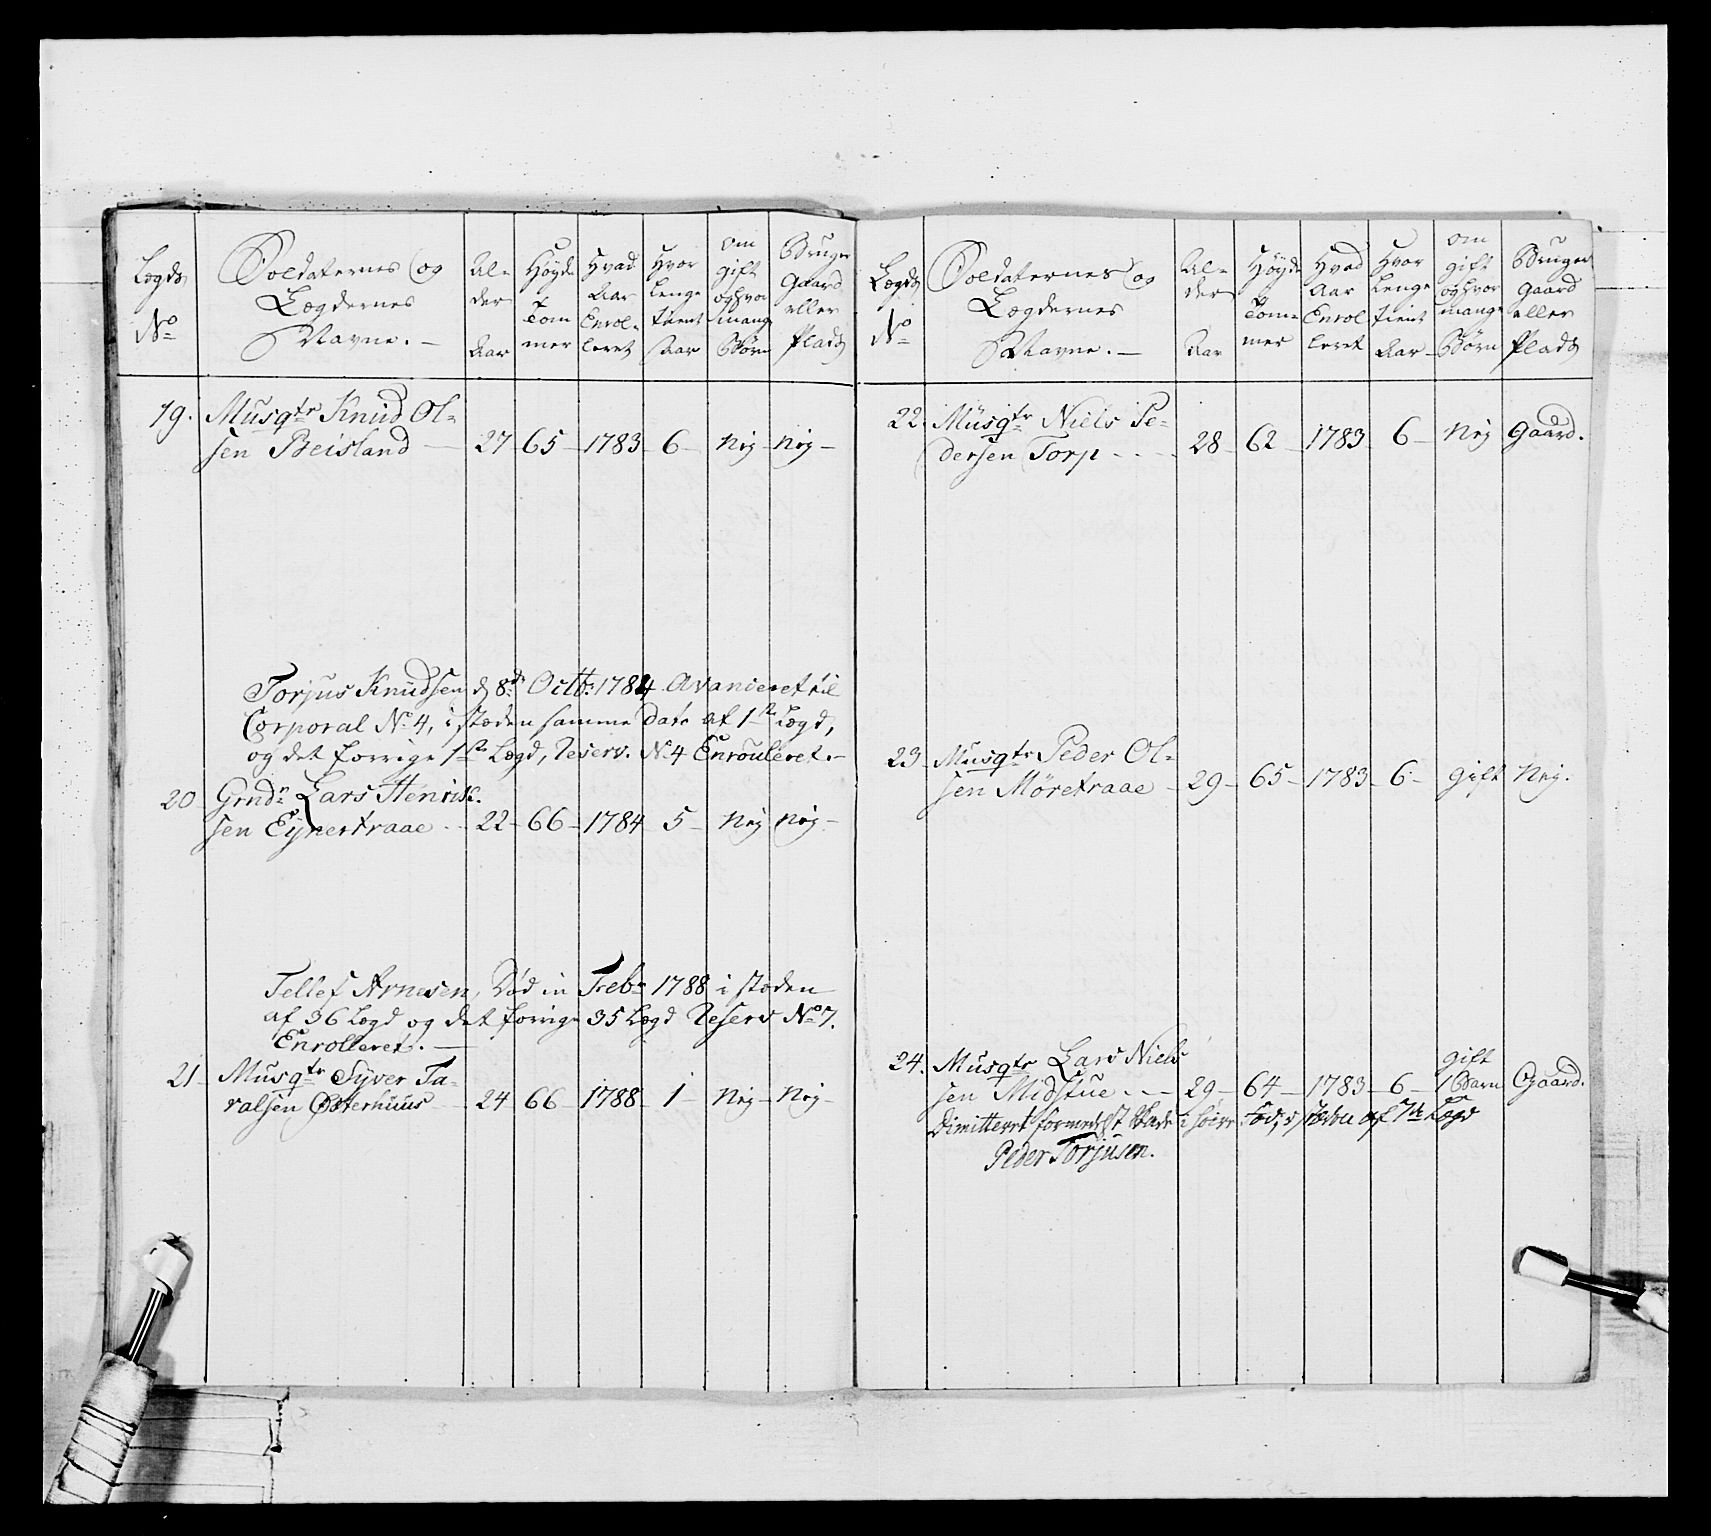 Lægds
No
Soldaternes og
Lægdernes
Navne.
Al-
der
Aar
Høyde
Tom
mer
Hvad
Aar
Enrol-
leret
Hvor
lenge
tient
Aar
om
gift
og hvor
mange
Børn
Bruger
Gaard
eller
Plads
19. Musqtr Knud Ol-
sen Beisland — 27 - 65 - 1783 - 6 - Nej - Nej -
Torjus Knudsen d 8de Octb: 1784 Avanceret til
Corporal No 4, i stæden samme Dato af 1ste Lægd,
og det forrige 1ste Lægd, Reserv. No 4 Enrouleret. -
20 Grndr Lars Henrik-
sen Eynestraae - 22 - 66 - 1784 5 - Nej Nej -
Tellef Arnesen, Død in Febr 1788 i stæden
af 36 Lægd og det forrige 35 Lægd Reserv No 7.
Enrolleret. —
21 Musqtr Syver Ta-
ralsen Østerhuus - 24 66 - 1788 - 1 - Nej - Nej -
Lægds
No
Soldaternes og
Lægdernes
Navne. —
Al-
der
Aar
Høyde
Tom-
mer
Hvad
Aar
Enrol
leret
Hvor
lenge
tient
Aar -
om
gift
og hvor
mange
Børn
Bruger
Gaard
eller
Plads
22. Musqtr Niels Pe-
dersen Torp - - - - 28 - 62 - 1783 6 - Nej Gaard.
23 - Musqtr Peder Ol-
sen Møretraae - 29 - 65 - 1783 - 6 - gift Nej.
24. Musqtr Lars Niels
sen Midstue - - - 29 - 64 - 1783 - 6 - gift 1 Barn Gaard.
Dimitteret formedelst Skade i Foed, i stæden af 7de Lægd
Peder Torjusen.